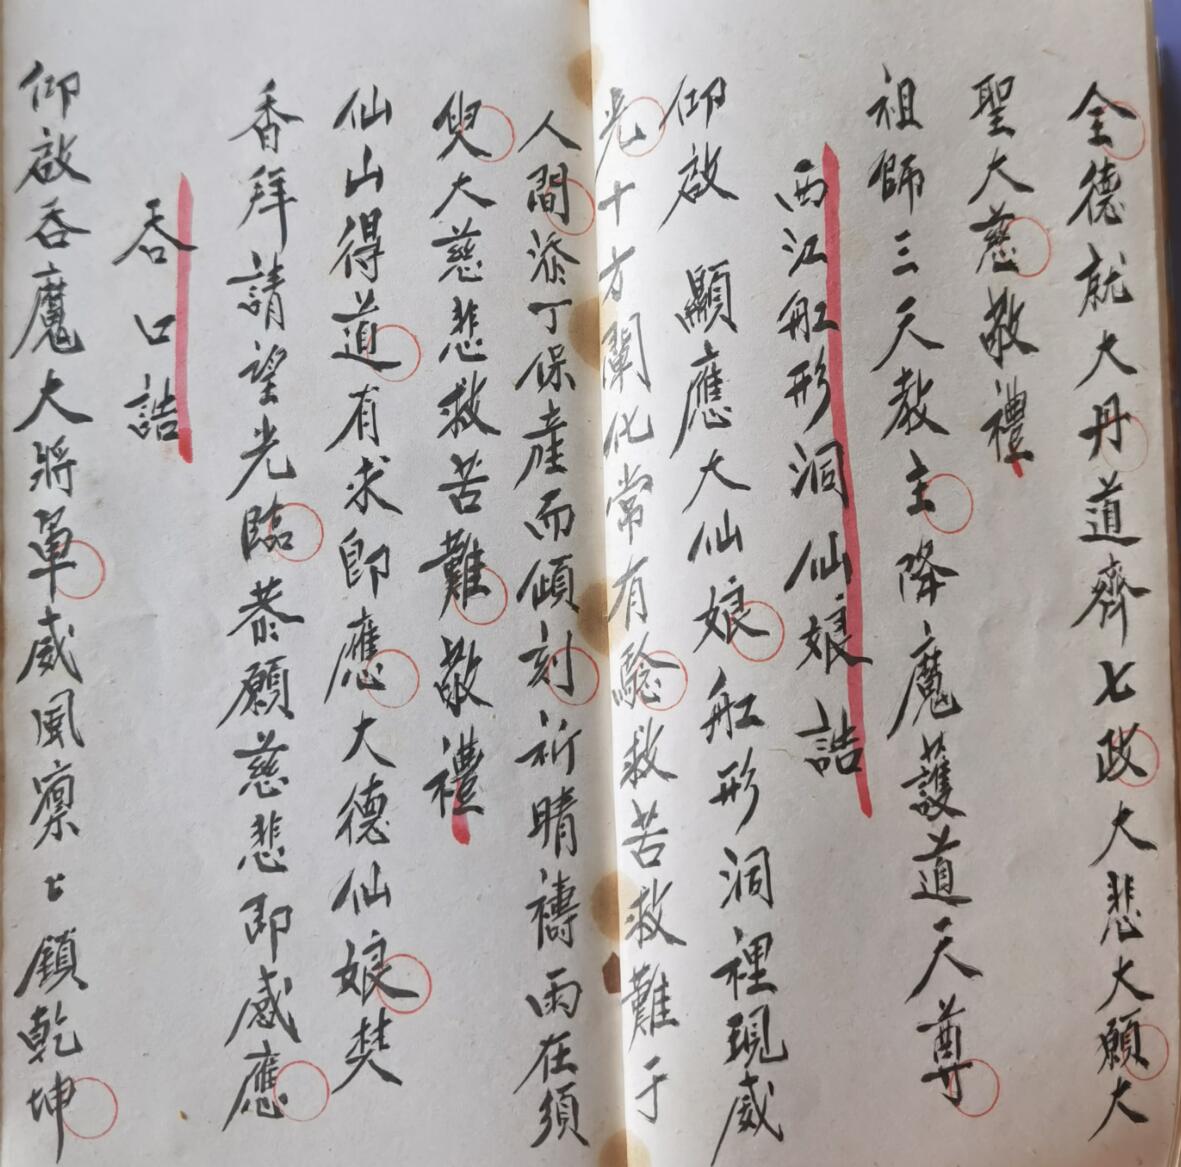 全德就大丹道齊七政大悲大願大
聖大慈敬禮
祖師三天教主降魔護道天尊
西江舡形洞仙娘誥
仰啟 顯應大仙娘舡形洞裡現威
光十方闡化常有驗救苦救難于
人間添丁保産而傾刻祈晴禱雨在須
臾大慈悲救苦難敬禮
仙山得道有求即應大德仙娘焚
香拜請望光臨恭願慈悲即感應
吞口誥
仰啟吞魔大將軍威風凛々鎖乾坤